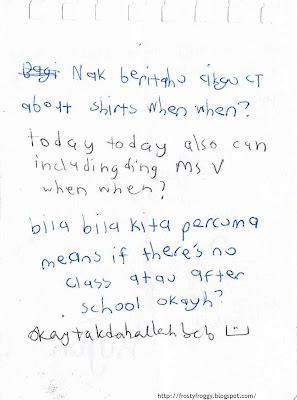 Bagi Nak beritahu cikgu CT
about shirts when when?
today today also can
includingding Ms V
when when?
bila bila kita percuma
means if there's no
class atau after
school okayh?
Okaytakdahallahbeb
http://frostyfroggy.blogspot.com/